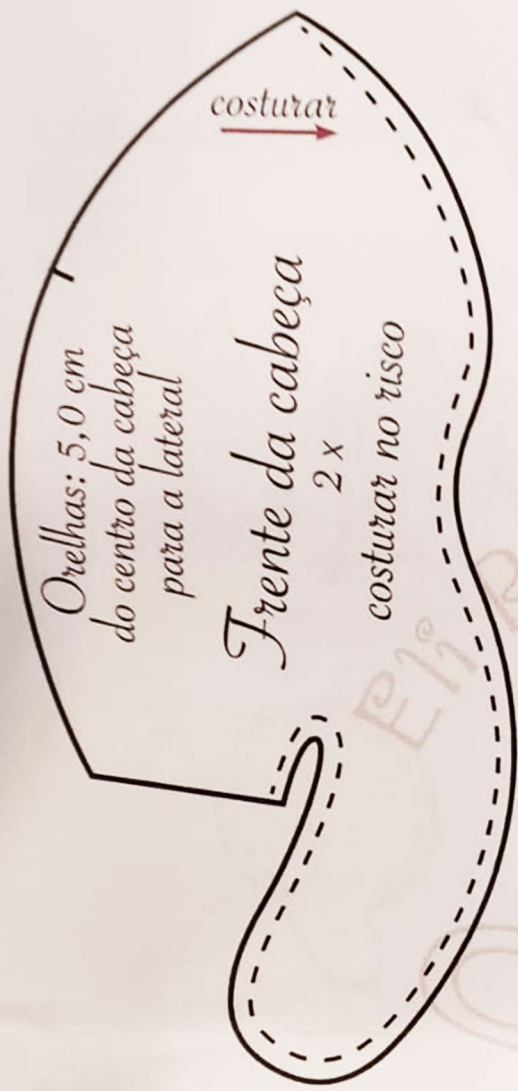 costurar
Orelhas: 5,0 cm
do centro da cabeça
para a lateral
Frente da cabeça
2 x
costurar no risco
Eli